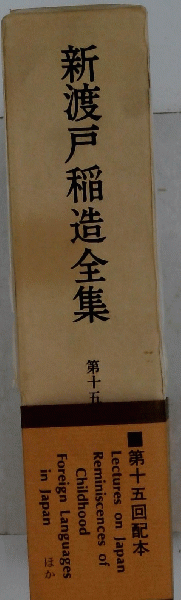 新渡戸稲造全集
第十五
■第十五回配本
Lectures on Japan
Reminiscences of
Childhood
Foreign Languages
in Japan
ほか